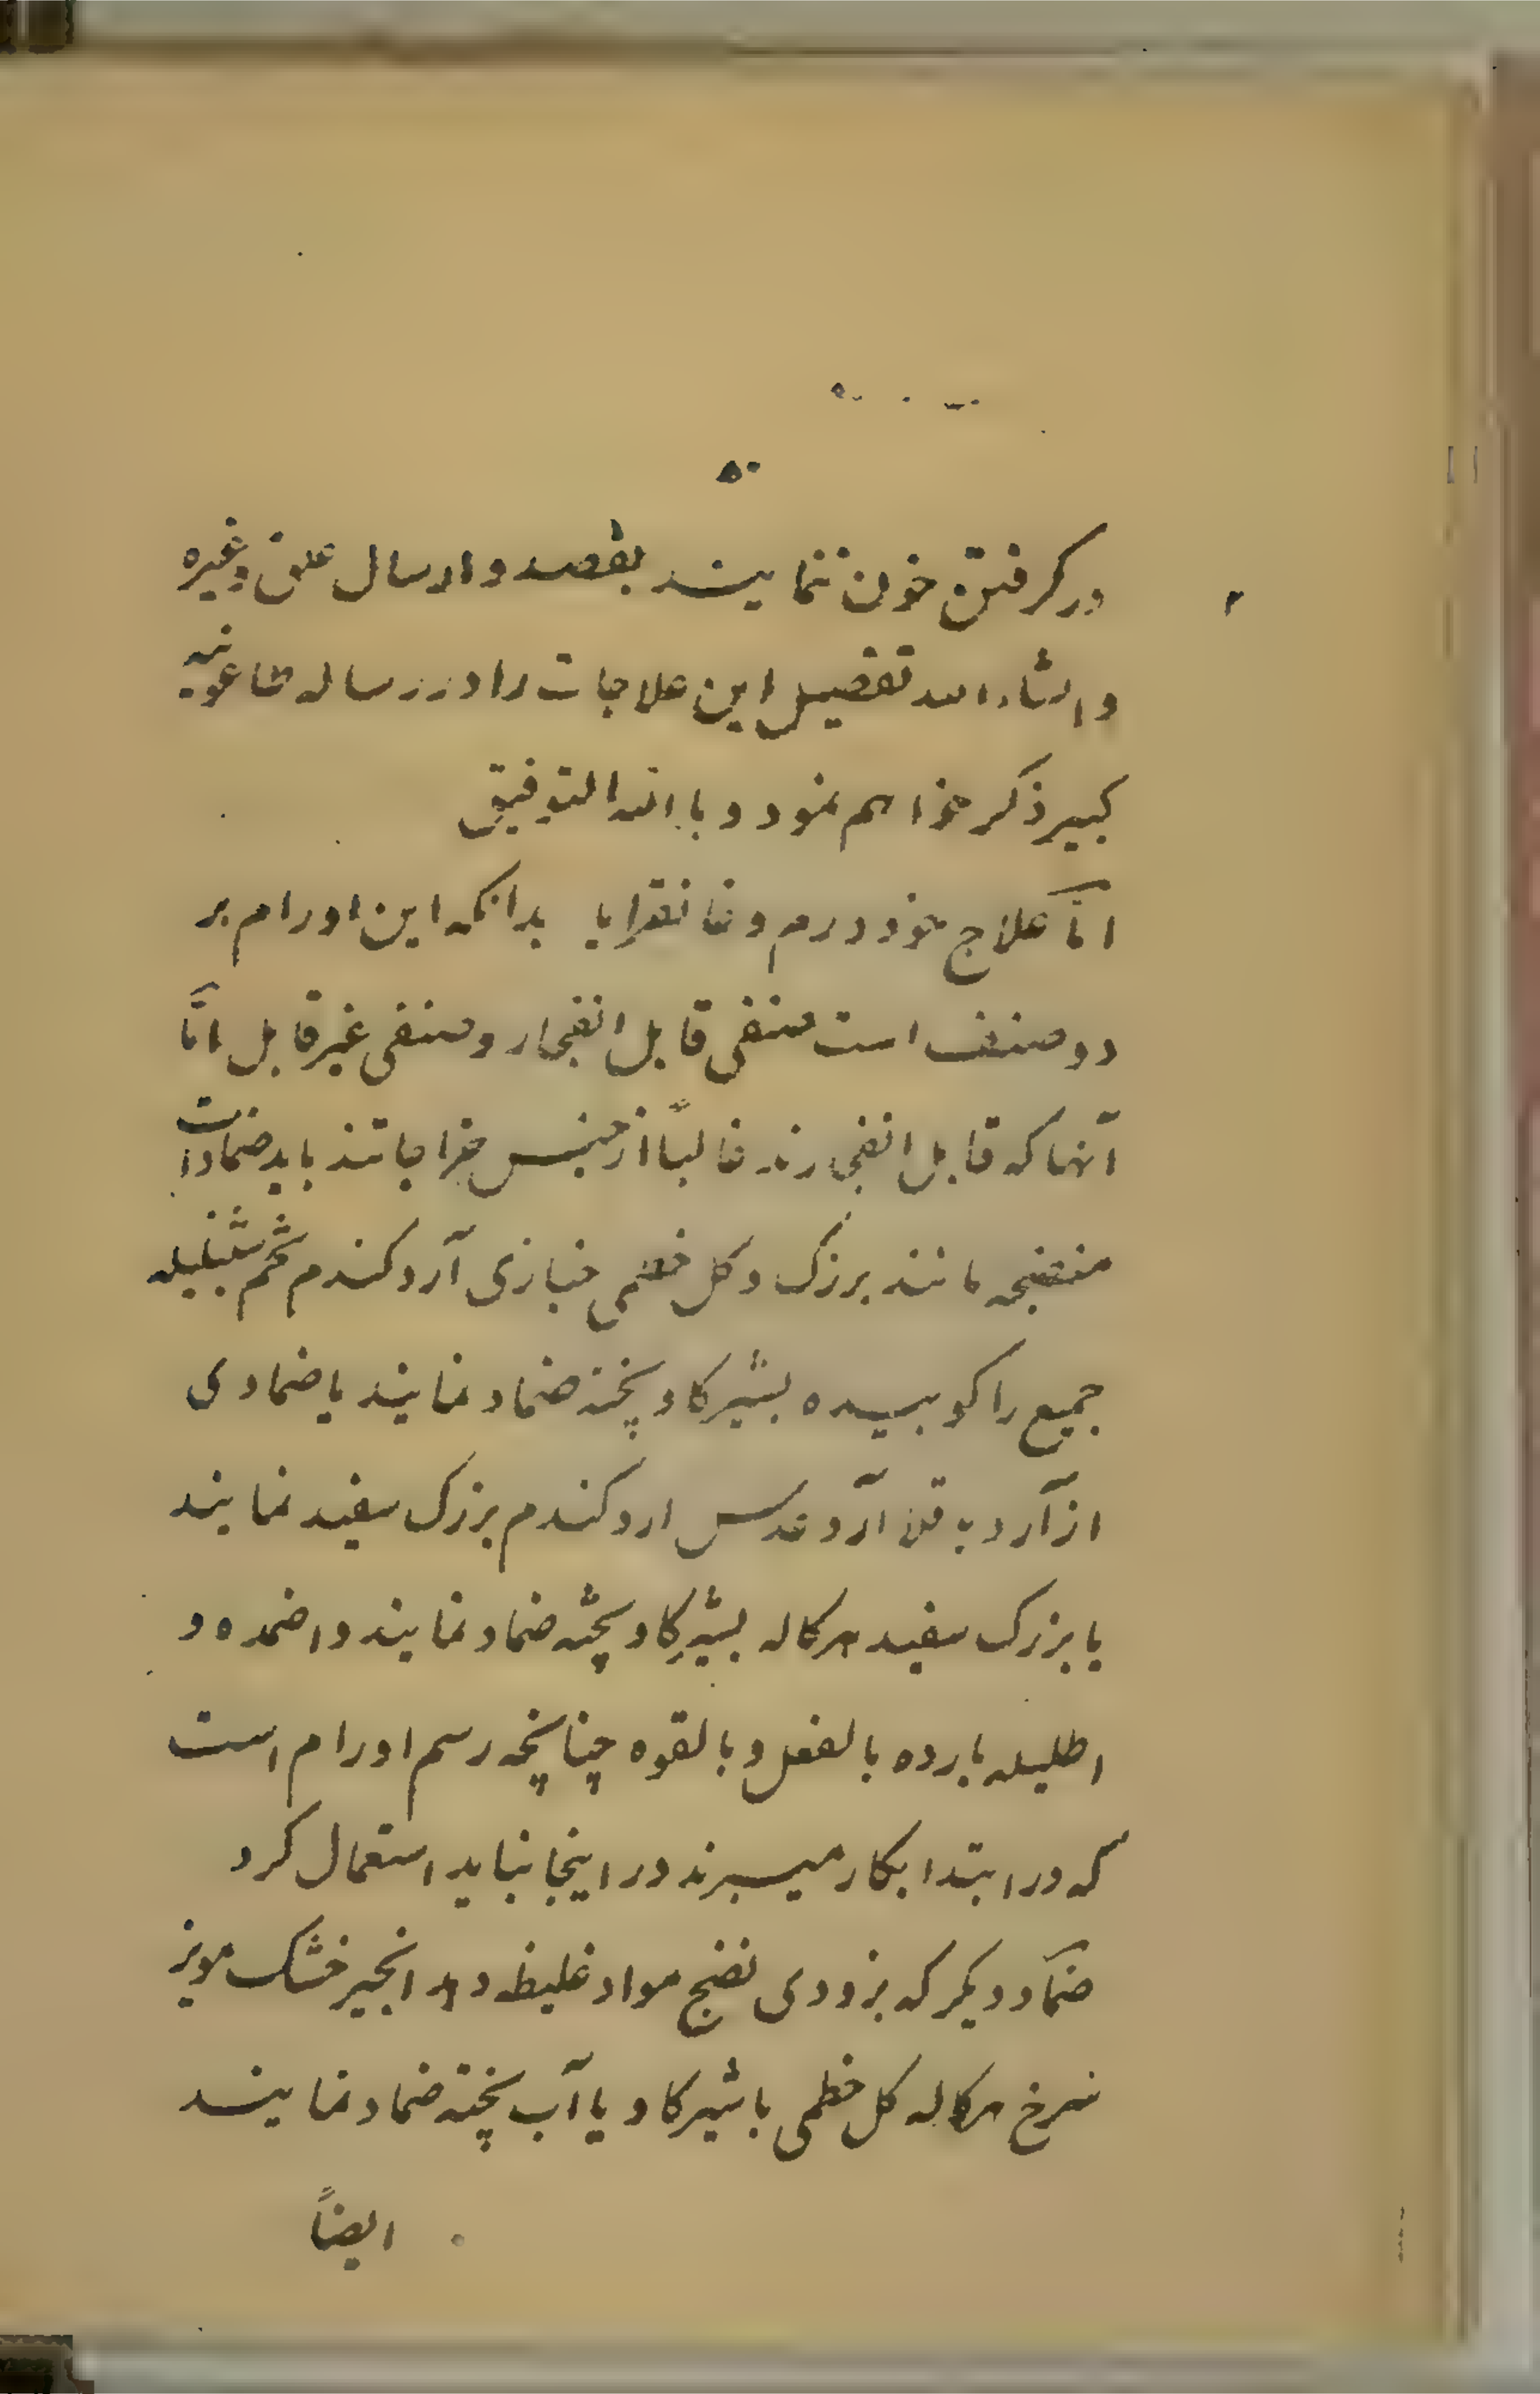 ۵۰
در کرفتن خون ننمایند بفصد و ارسال علق و غیره
و انشاء الله تفصیل این علاجات را در رساله طاعونیه
کبیر ذکر خواهم نمود و باالله التوفیق
امّا علاج خود ورم و غانقرایا بدانکه این اورام بر
دو صنف است صنفی قابل انفجار و صنفی غیر قابل امّا
آنها که قابل انفجارند غالباً از جنس خراجاتند باید ضمادات
منضجه مانند برزک و کل خطمی خبازی آرد کندم تخم شنبلیله
جمیع را کوبیده بشیر کاو پخته ضماد نمایند یا ضمادی
از آرد باقلا آرد عدس ارد کندم برزک سفید نمایند
یا بزرک سفید پرکاله بشیر کاو پخته ضماد نمایند و اضمده و
اطلیله بارده بالفعل و بالقوه چنانچه رسم اورام است
که در ابتدا بکار میبرند در اینجا نباید استعمال کرد
ضماد دیکر که بزودی نضج مواد غلیظه دهد انجیر خشک مویز
سرخ پرکاله کل خطمی با شیر کاو یا آب پخته ضماد نمایند
ایضاً